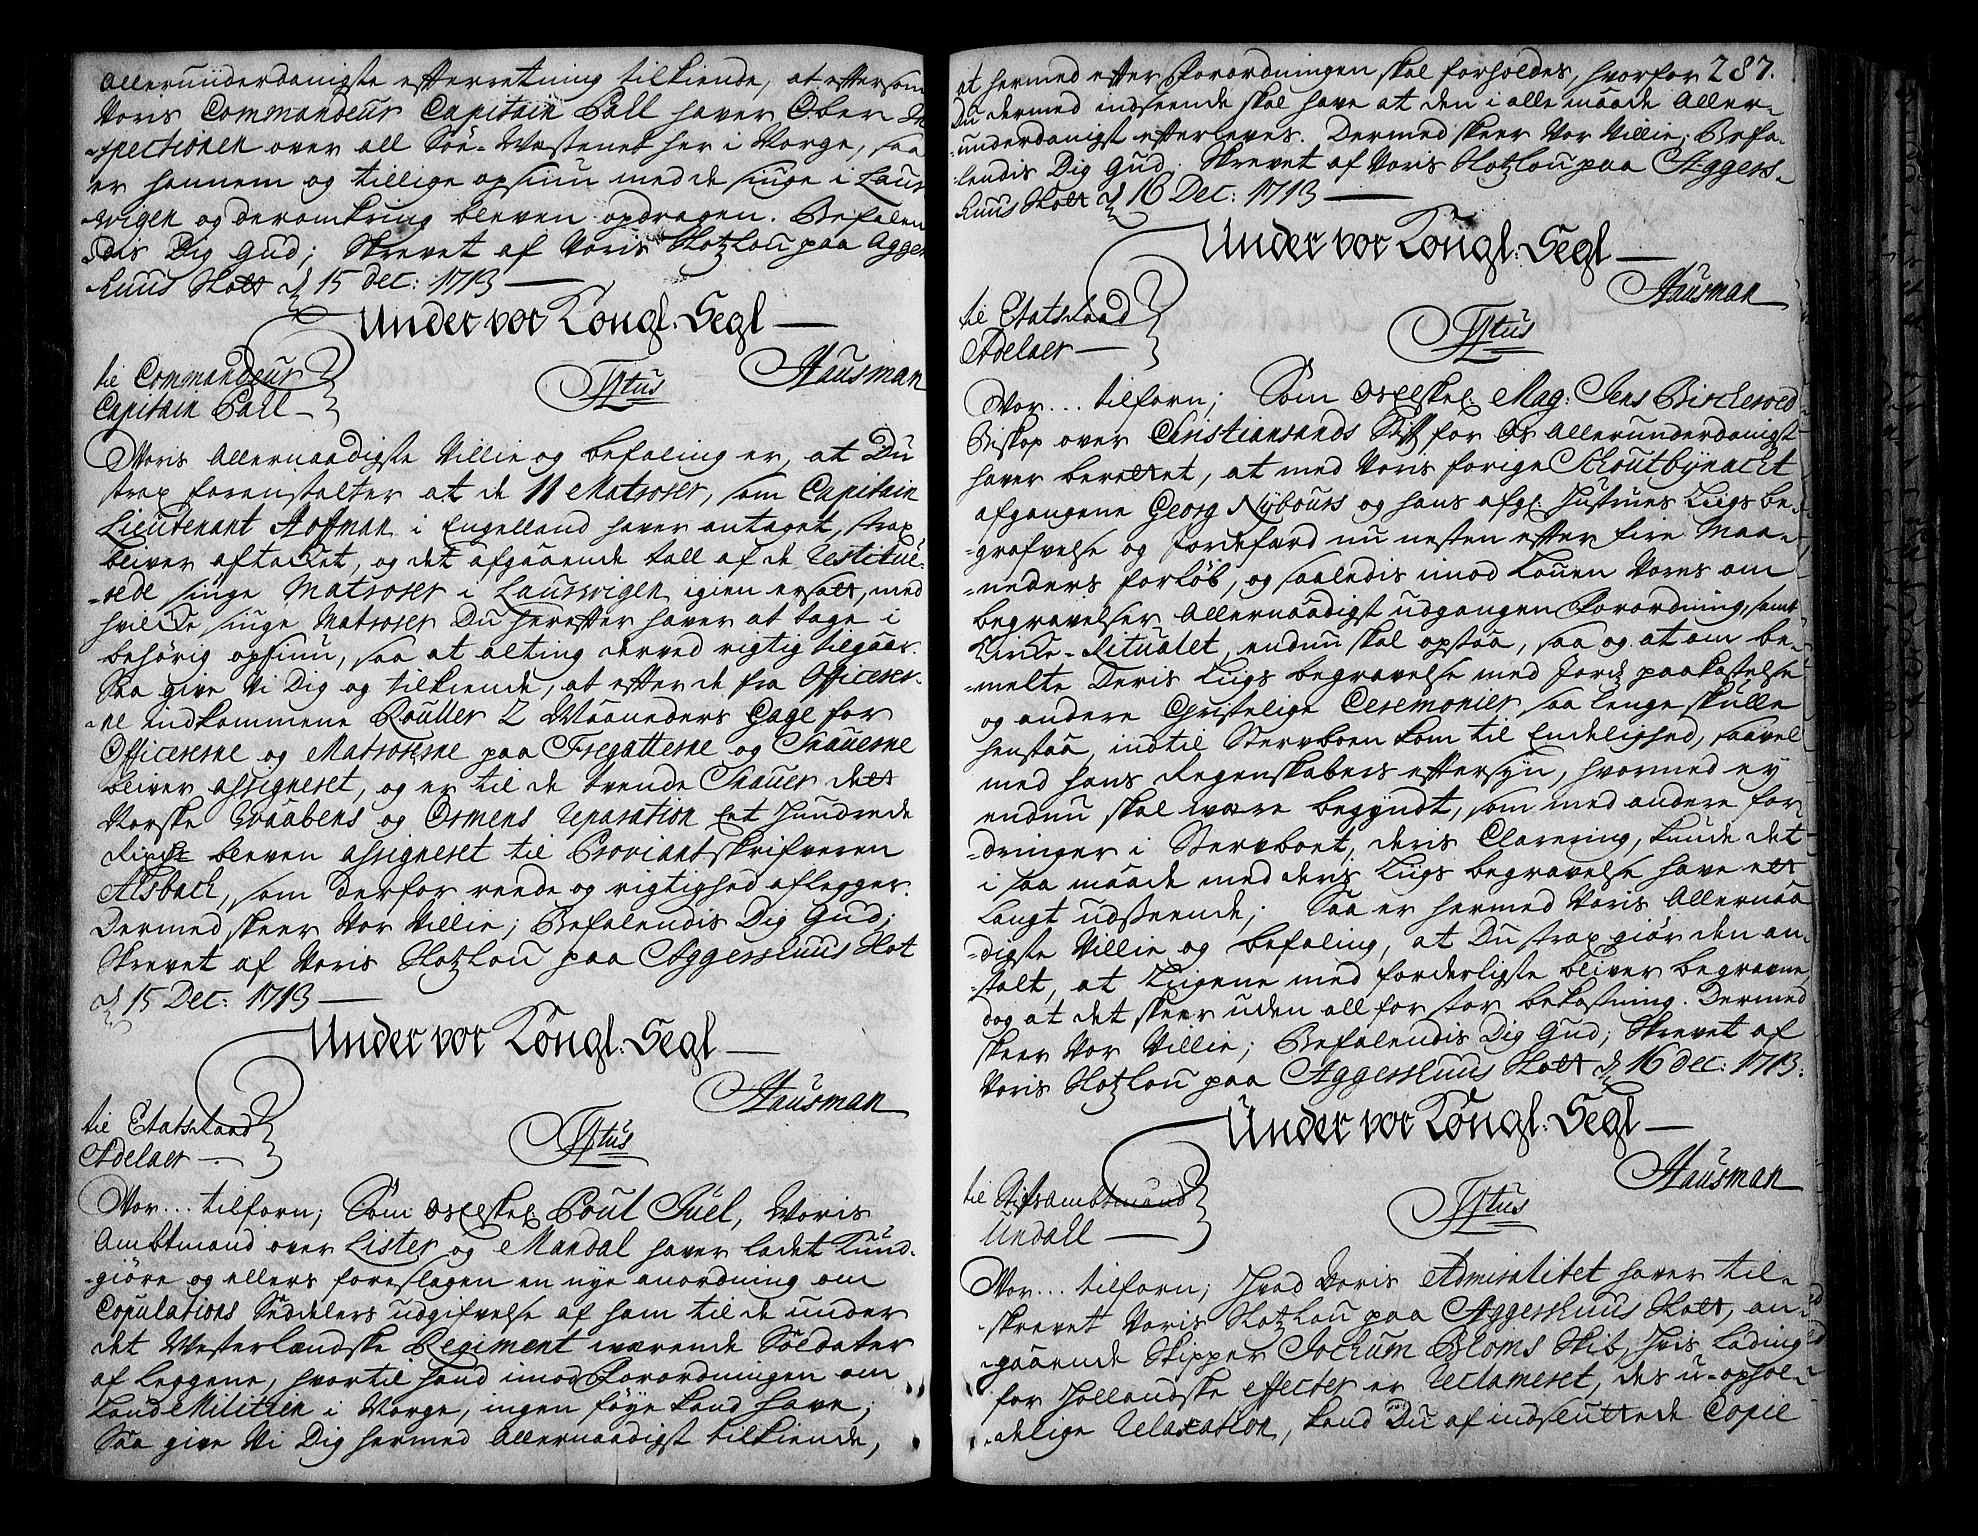 Allerunderdanigste efterretning tilkiende, at eftersom
Voris Commandeur Capitain Pall haver Ober In
-spectionen over all Söe-Wæsenet her i Norge, saa
er hannem og tillige opsiun med de siuge i Laur
-wigen og deromkring bleven opdragen. Befalen
dis Dig Gud; Skrevet af Voris Slotzlou paa Agger
huus Slott d 15 Dec: 1713 —
Under vor Kongl: Segl —
Hausman
til Commandeur
Capitain Pall —
Tÿtus
Voris Allernaadigste Villie og befaling er, at Du
strax foranstalter at de 11 Matroser, som Capitain
Lieutenant Hoffman i Engelland haver antaget, strax
bliver aftacket, og det afgaaende tall af de restitue-
-rede siuge Matroser i Laurwigen igien ersatt, med
hvilcke siuge Matroser Du herefter haver at tage i
behörig opsiun, saa at alting derved rigtig tilgaar.
Saa give Vi Dig og tilkiende, at efter de fra Officerer-
-ne indkommene Roller 2 Maaneders Gage for
Officererne og Matroserne paa Fregatterne og Prauerne
bliver assigneret, og er til de tvende Prauer det
Norske Vaabens og Ormens reparation Et Hundrede
Rixdr bleven assigneret til Proviantskrifveren
Alsbach, som derfor reede og rigtighed aflegger.
Dermed skeer Vor Villie; Befalendis Dig Gud;
Skrevet af Voris Slotzlou paa Aggershuus Slot
d 15 Dec: 1713 —
Under vor Kongl: Segl —
Hausman
til Etatsraad
Adelaer —
Tÿtus
Vor ... tilforn; Som Os Elskel: Poul Juel, Voris
Ambtmand over Lister og Mandal haver ladet Kund-
-giöre og ellers foreslagen en nye anordning om
Copulations Seddelers udgifvelse af ham til de under
det Westerlandske Regiment værende Soldater
af Leggene, hvortil hand imod Forordningen om
Land Militzien i Norge, ingen föye kand have;
Saa give Vi Dig hermed Allernaadigst tilkiende,
at hermed efter Forordningen skal forholdes, hvorfor 287.
Du dermed indseende skal have at den i alle maade Aller-
-underdanigst efterleves. Dermed skeer Vor Villie; Befa-
-lendis Dig Gud. Skrevet af Voris Slotzlou paa Aggers-
huus Slott d 16 Dec: 1713 —
Under vor Kongl: Segl —
Hausman
til Etatsraad
Adelaer —
Tÿtus
Vor ... tilforn; Som Os Elskel: Mag: Jens Bircherod
Biskop over Christiansands Stift for Os Allerunderdanigst
haver berettet, at med Voris forige Schoutbynacht
afgangene Georg Nÿbours og hans afg: Hustrues Liigs be-
-grafvelse og Jordefærd nu nesten efter fire Maa-
-neders forlöb, og saaledis imod Louen Vores om
begravelser Allernaadigst udgangen Forordning, samt
Kircke-Ritualet, endnu skal opstaa, saa og at om be-
-melte Deris Liigs begravelse med Jord paakastelse
og andere Christelige Ceremonier saa lenge skulle
henstaa, indtil Stervboen kom til Endelighed, saavel
med hans Regenskabers eftersyn, hvormed ey
endnu skal være begyndt, som med andere for
-dringer i Stervboet, deris Clarering, kunde det
i saa maade med deris Liigs begravelse have ett
langt udseende; Saa er hermed Voris Allernaa
-digste Villie og befaling, at Du strax giör den an-
-stalt, at Liigene med forderligste bliver begravne,
dog at det skeer uden all for stor bekostning. Dermed
skeer Vor Villie; Befalendis Dig Gud; Skrevet af
Voris Slotzlou paa Aggershuus Slott d 16 Dec: 1713.
Under vor Kongl: Segl —
Hausman
til Stiftsambtmand
Undall —
Tÿtus
Vor ... tilforn; Hvad Voris Admiralitet haver til-
-skrevet Voris Slotzlou paa Aggershuus Slott, an-
-gaaende Skipper Jochum Bloms Skib, hvis Lading
for Hollandske effecter er reclameret, des u-ophol-
-delige relaxation, kand Du af indsluttede Copie